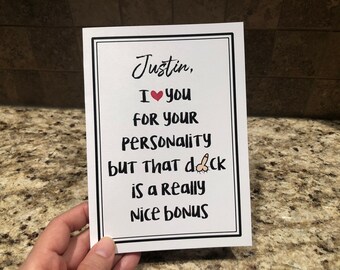 Justin,
I ❤ you
for your
personality
but that d🍆ck
is a really
nice bonus